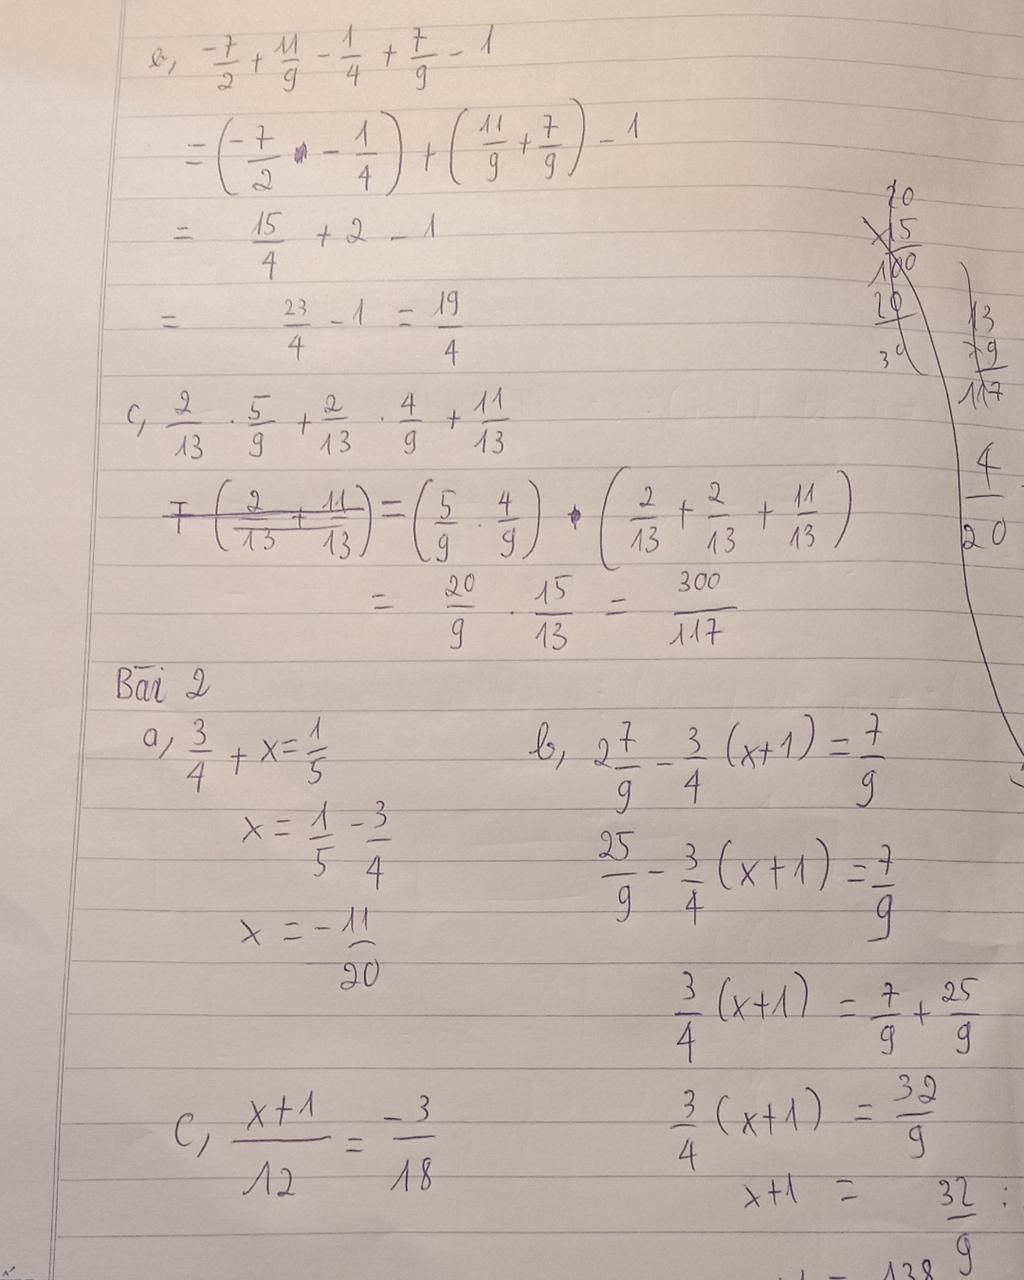 b, -7/2 + 11/9 - 1/4 + 7/9 - 1
= (-7/2 - 1/4) + (11/9 + 7/9) - 1
= 15/4 + 2 - 1
= 23/4 - 1 = 19/4
c, 2/13 . 5/9 + 2/13 . 4/9 + 11/13
= (5/9 . 4/9) . (2/13 + 2/13 + 11/13)
= 20/9 . 15/13 = 300/117
20
x 15
100
20
30
13
x 9
117
4/20
Bài 2
a, 3/4 + x = 1/5
x = 1/5 - 3/4
x = -11/20
b, 2 7/9 - 3/4 (x+1) = 7/9
25/9 - 3/4 (x+1) = 7/9
3/4 (x+1) = 7/9 + 25/9
3/4 (x+1) = 32/9
x+1 = 32/9 :
c, x+1/12 = -3/18